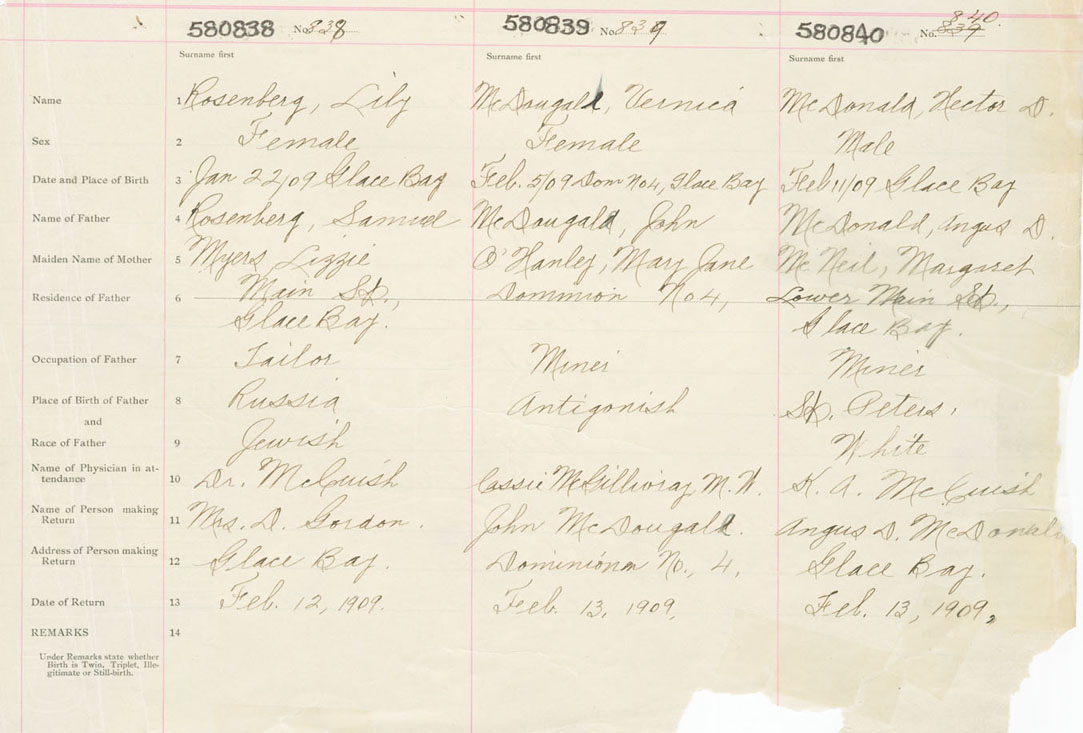 580838 No. 838 580839 No. 839 580840 No. 839 840.
Surname first Surname first Surname first
Name 1 Rosenberg, Lily McDougald, Vernica McDonald, Hector D.
Sex 2 Female Female Male
Date and Place of Birth 3 Jan 22/09 Glace Bay Feb. 5/09 Dom No4, Glace Bay Feb 11/09 Glace Bay
Name of Father 4 Rosenberg, Samuel McDougald, John McDonald, Angus D.
Maiden Name of Mother 5 Myers Lizzie O'Hanley, Mary Jane McNeil, Margaret
Residence of Father 6 Main St., Dominion No 4, Lower Main St.,
Glace Bay. Glace Bay.
Occupation of Father 7 Tailor Miner Miner
Place of Birth of Father 8 Russia Antigonish St. Peters.
and
Race of Father 9 Jewish White
Name of Physician in at-
tendance 10 Dr. McCuish Cassie McGillivray M.W. K. A. McCuish
Name of Person making
Return 11 Mrs. D. Gordon. John McDougald. Angus D. McDonald
Address of Person making
Return 12 Glace Bay. Dominion No., 4, Glace Bay.
Date of Return 13 Feb. 12, 1909. Feb. 13, 1909, Feb. 13, 1909,
REMARKS 14
Under Remarks state whether
Birth is Twin, Triplet, Ille-
gitimate or Still-birth.